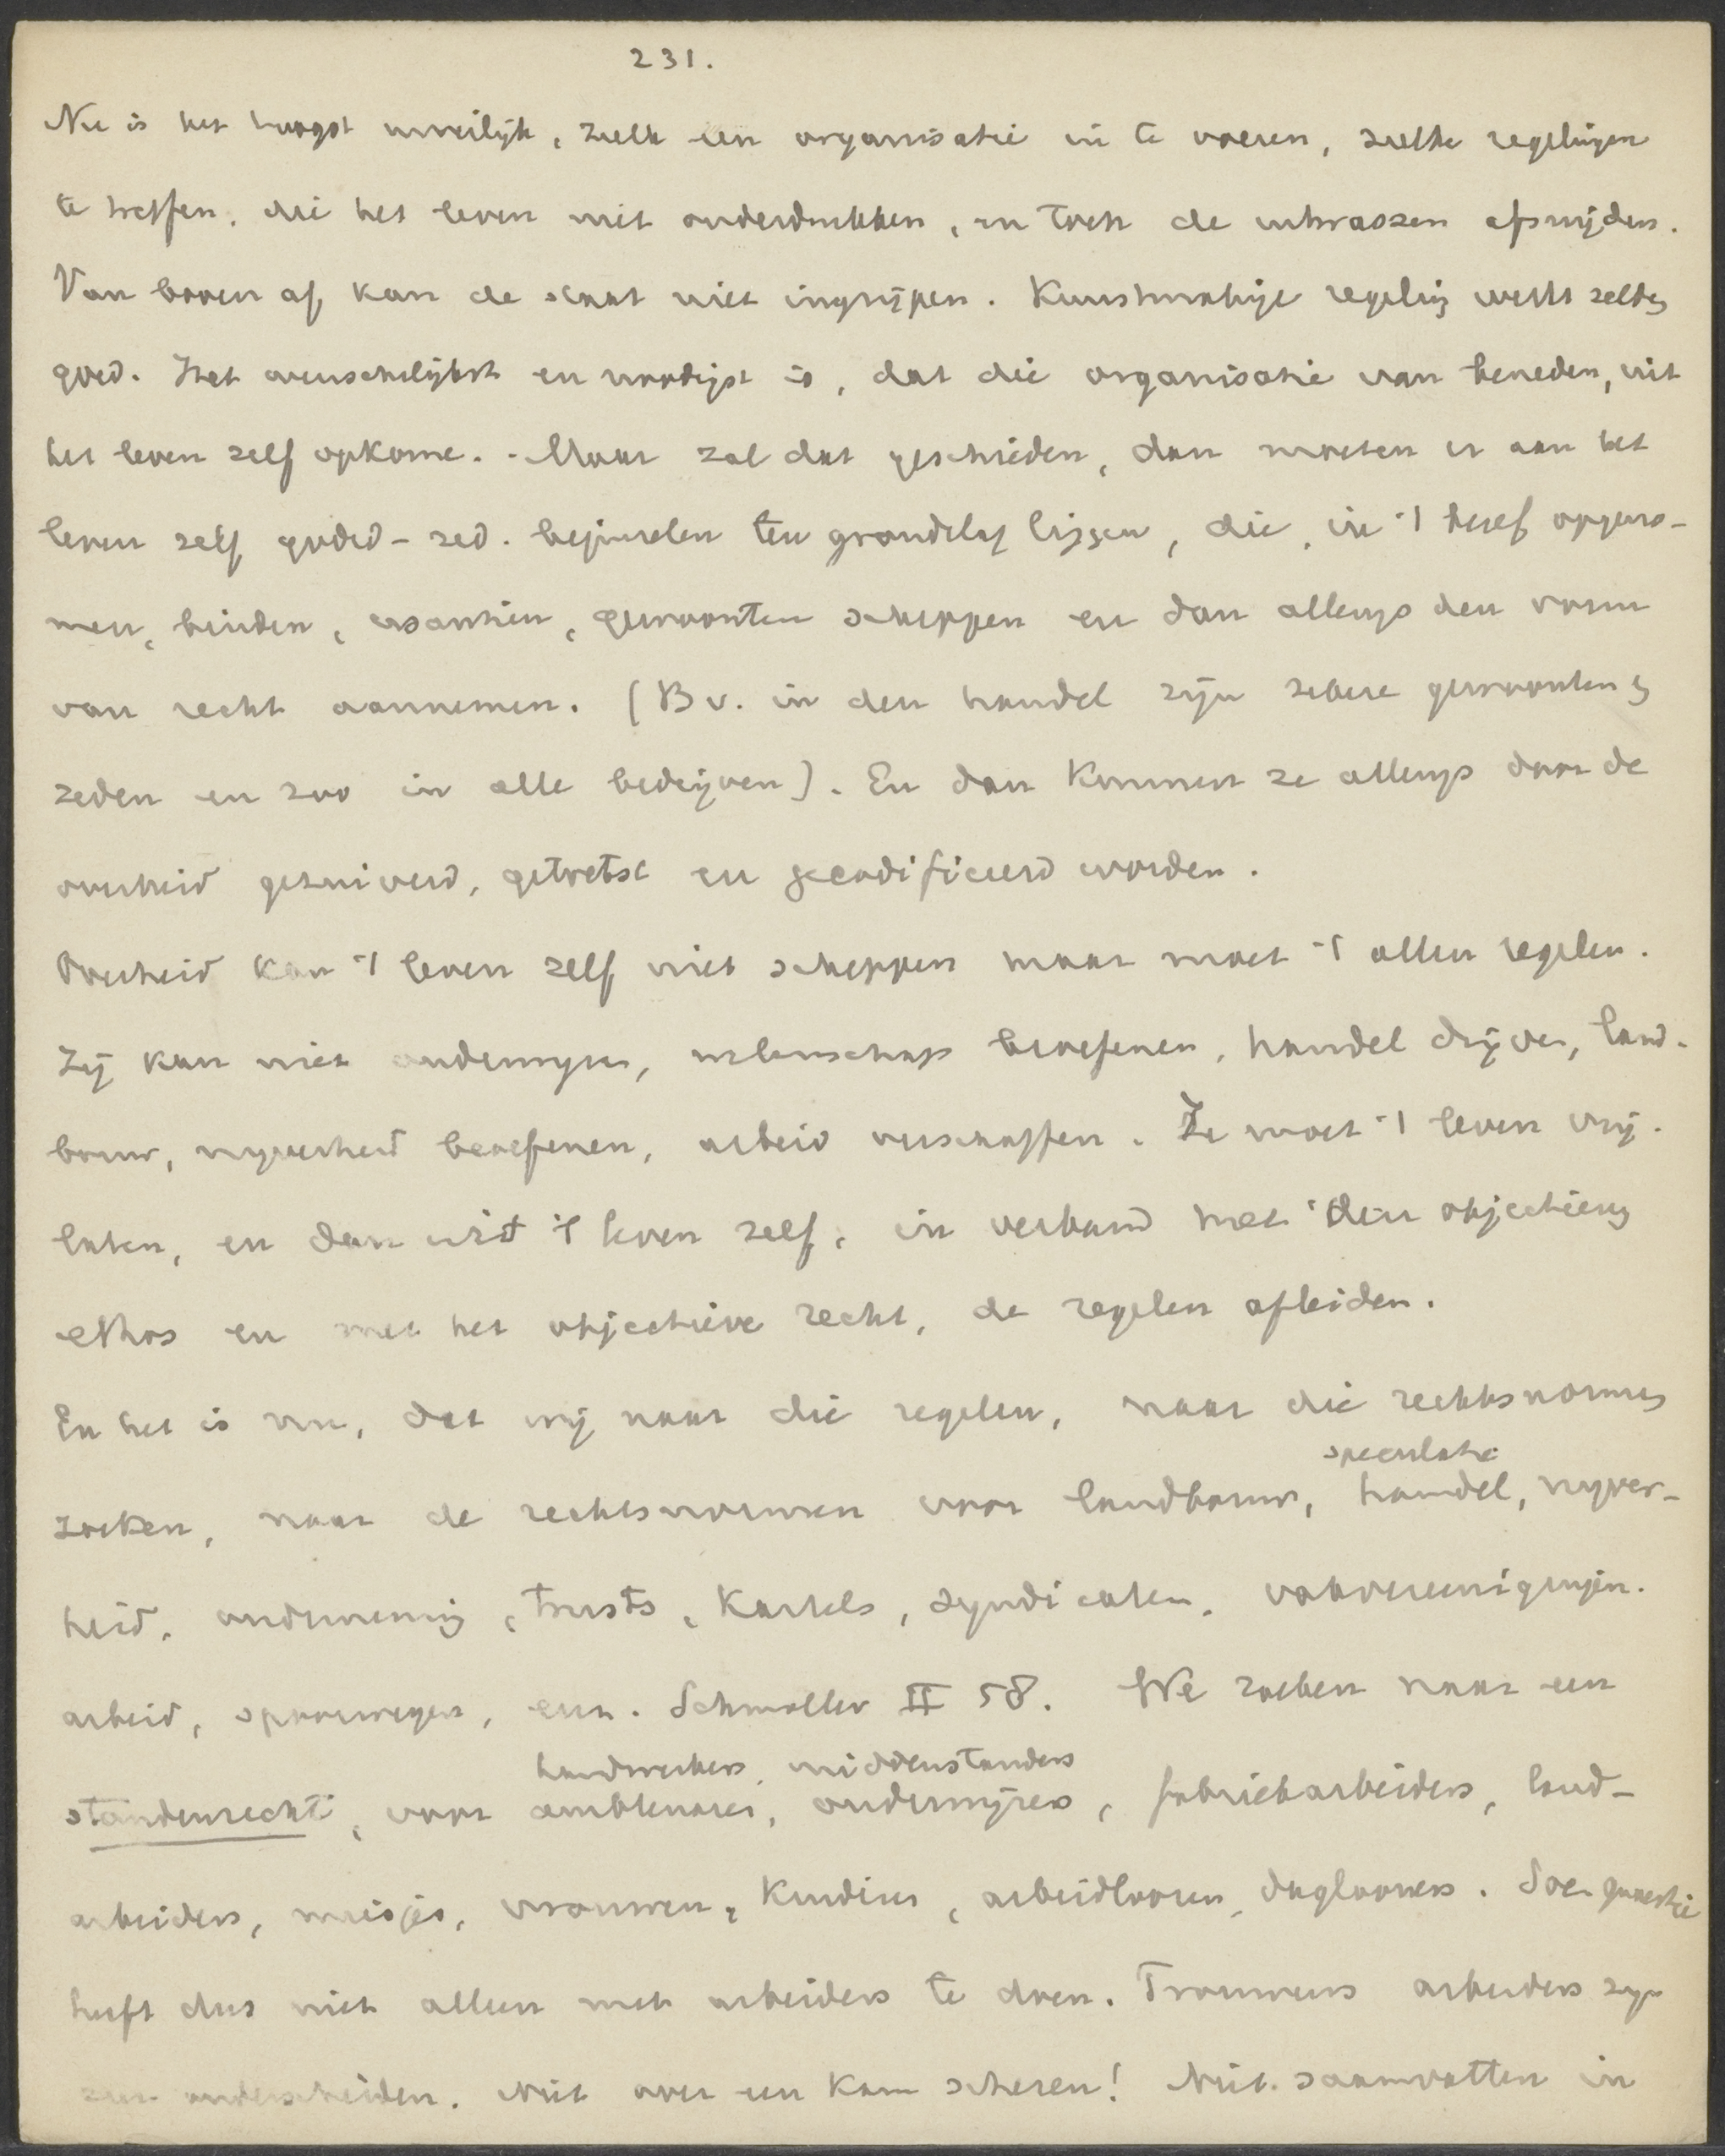 231.
Nu is het hoogst moeilijk, zulk een organisatie in te voeren, zulke regelingen
te treffen, die het leven niet onderdrukken, en toch de uitwassen afsnijden.
Van boven af kan de staat niet ingrijpen. Kunstmatige regeling werkt zelden
goed. Het wenschelijkst en noodigst is, dat die organisatie van beneden, uit
het leven zelf opkome. - Maar zal dat geschieden, dan moeten er aan het
leven zelf godsd - zed. beginselen ten grondslag liggen, die, in 't besef opgeno-
men, binden, usantiën, gewoonten scheppen en dan allengs den vorm
van recht aannemen. (Bv. in den handel zijn zekere gewoonten,
zeden en zoo in alle bedrijven). En dan kunnen ze allengs door de
overheid gezuiverd, getoetst en gecodificeerd worden.
Overheid kan 't leven zelf niet scheppen maar moet 't alleen regelen.
Zij kan niet ondernemen, wetenschap beoefenen, handel drijven, land-
bouw, nijverheid beoefenen, arbeid verschaffen. Ze moet 't leven vrij-
laten, en dan uit 't leven zelf, in verband met den objectieven
ethos en met het objectieve recht, de regelen afleiden.
En het is nu, dat wij naar die regelen, naar die rechtsnormen
speculatie
zoeken, naar de rechtsnormen voor landbouw, handel, nijver-
heid, onderneming, trusts, kartels, syndicaten, vakvereenigingen.
arbeid, spoorwegen, enz. Schmoller II 58. We zoeken naar een
handwerkers, middenstanders
standenrecht, voor ambtenaren, ondernemers, fabriekarbeiders, land-
arbeiders, meisjes, vrouwen, kinderen, arbeidloozen, daglooners. Soc. quaestie
heeft dus niet alleen met arbeiders te doen. Trouwens arbeiders zijn
zeer onderscheiden. Niet over een kam scheren! Niet saamvatten in